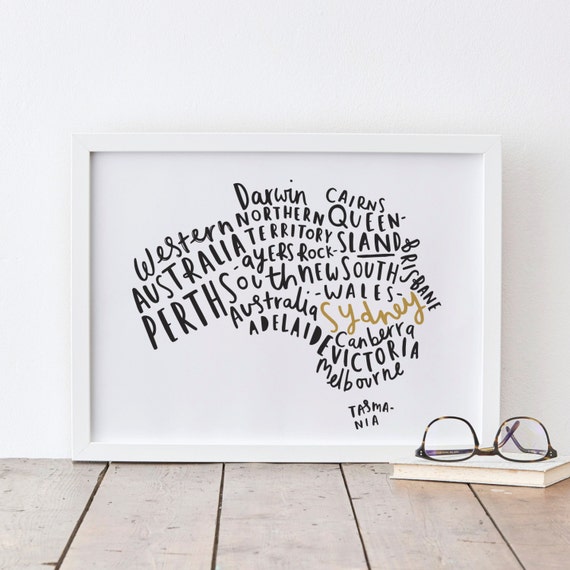 Western
AUSTRALIA
PERTH
Darwin
NORTHERN
TERRITORY
-AYERS ROCK-
South
Australia
ADELAIDE
CAIRNS
QUEEN-
SLAND
BRISBANE
NEW SOUTH
-WALES-
Sydney
Canberra
VICTORIA
Melbourne
TASMA-
NIA